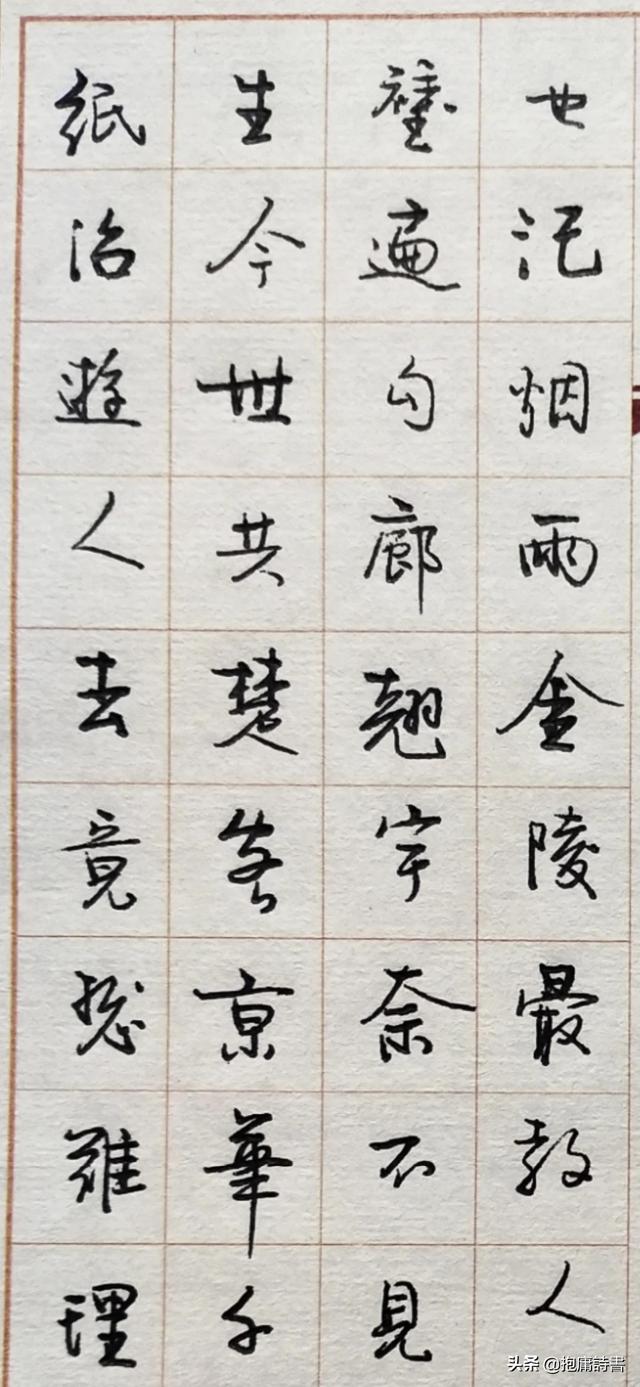 也記烟雨金陵最教人
遍勾廊翹宇奈不見
生今世共楚京華千
紙治遊人去竟難理
头条 @抱庸詩書